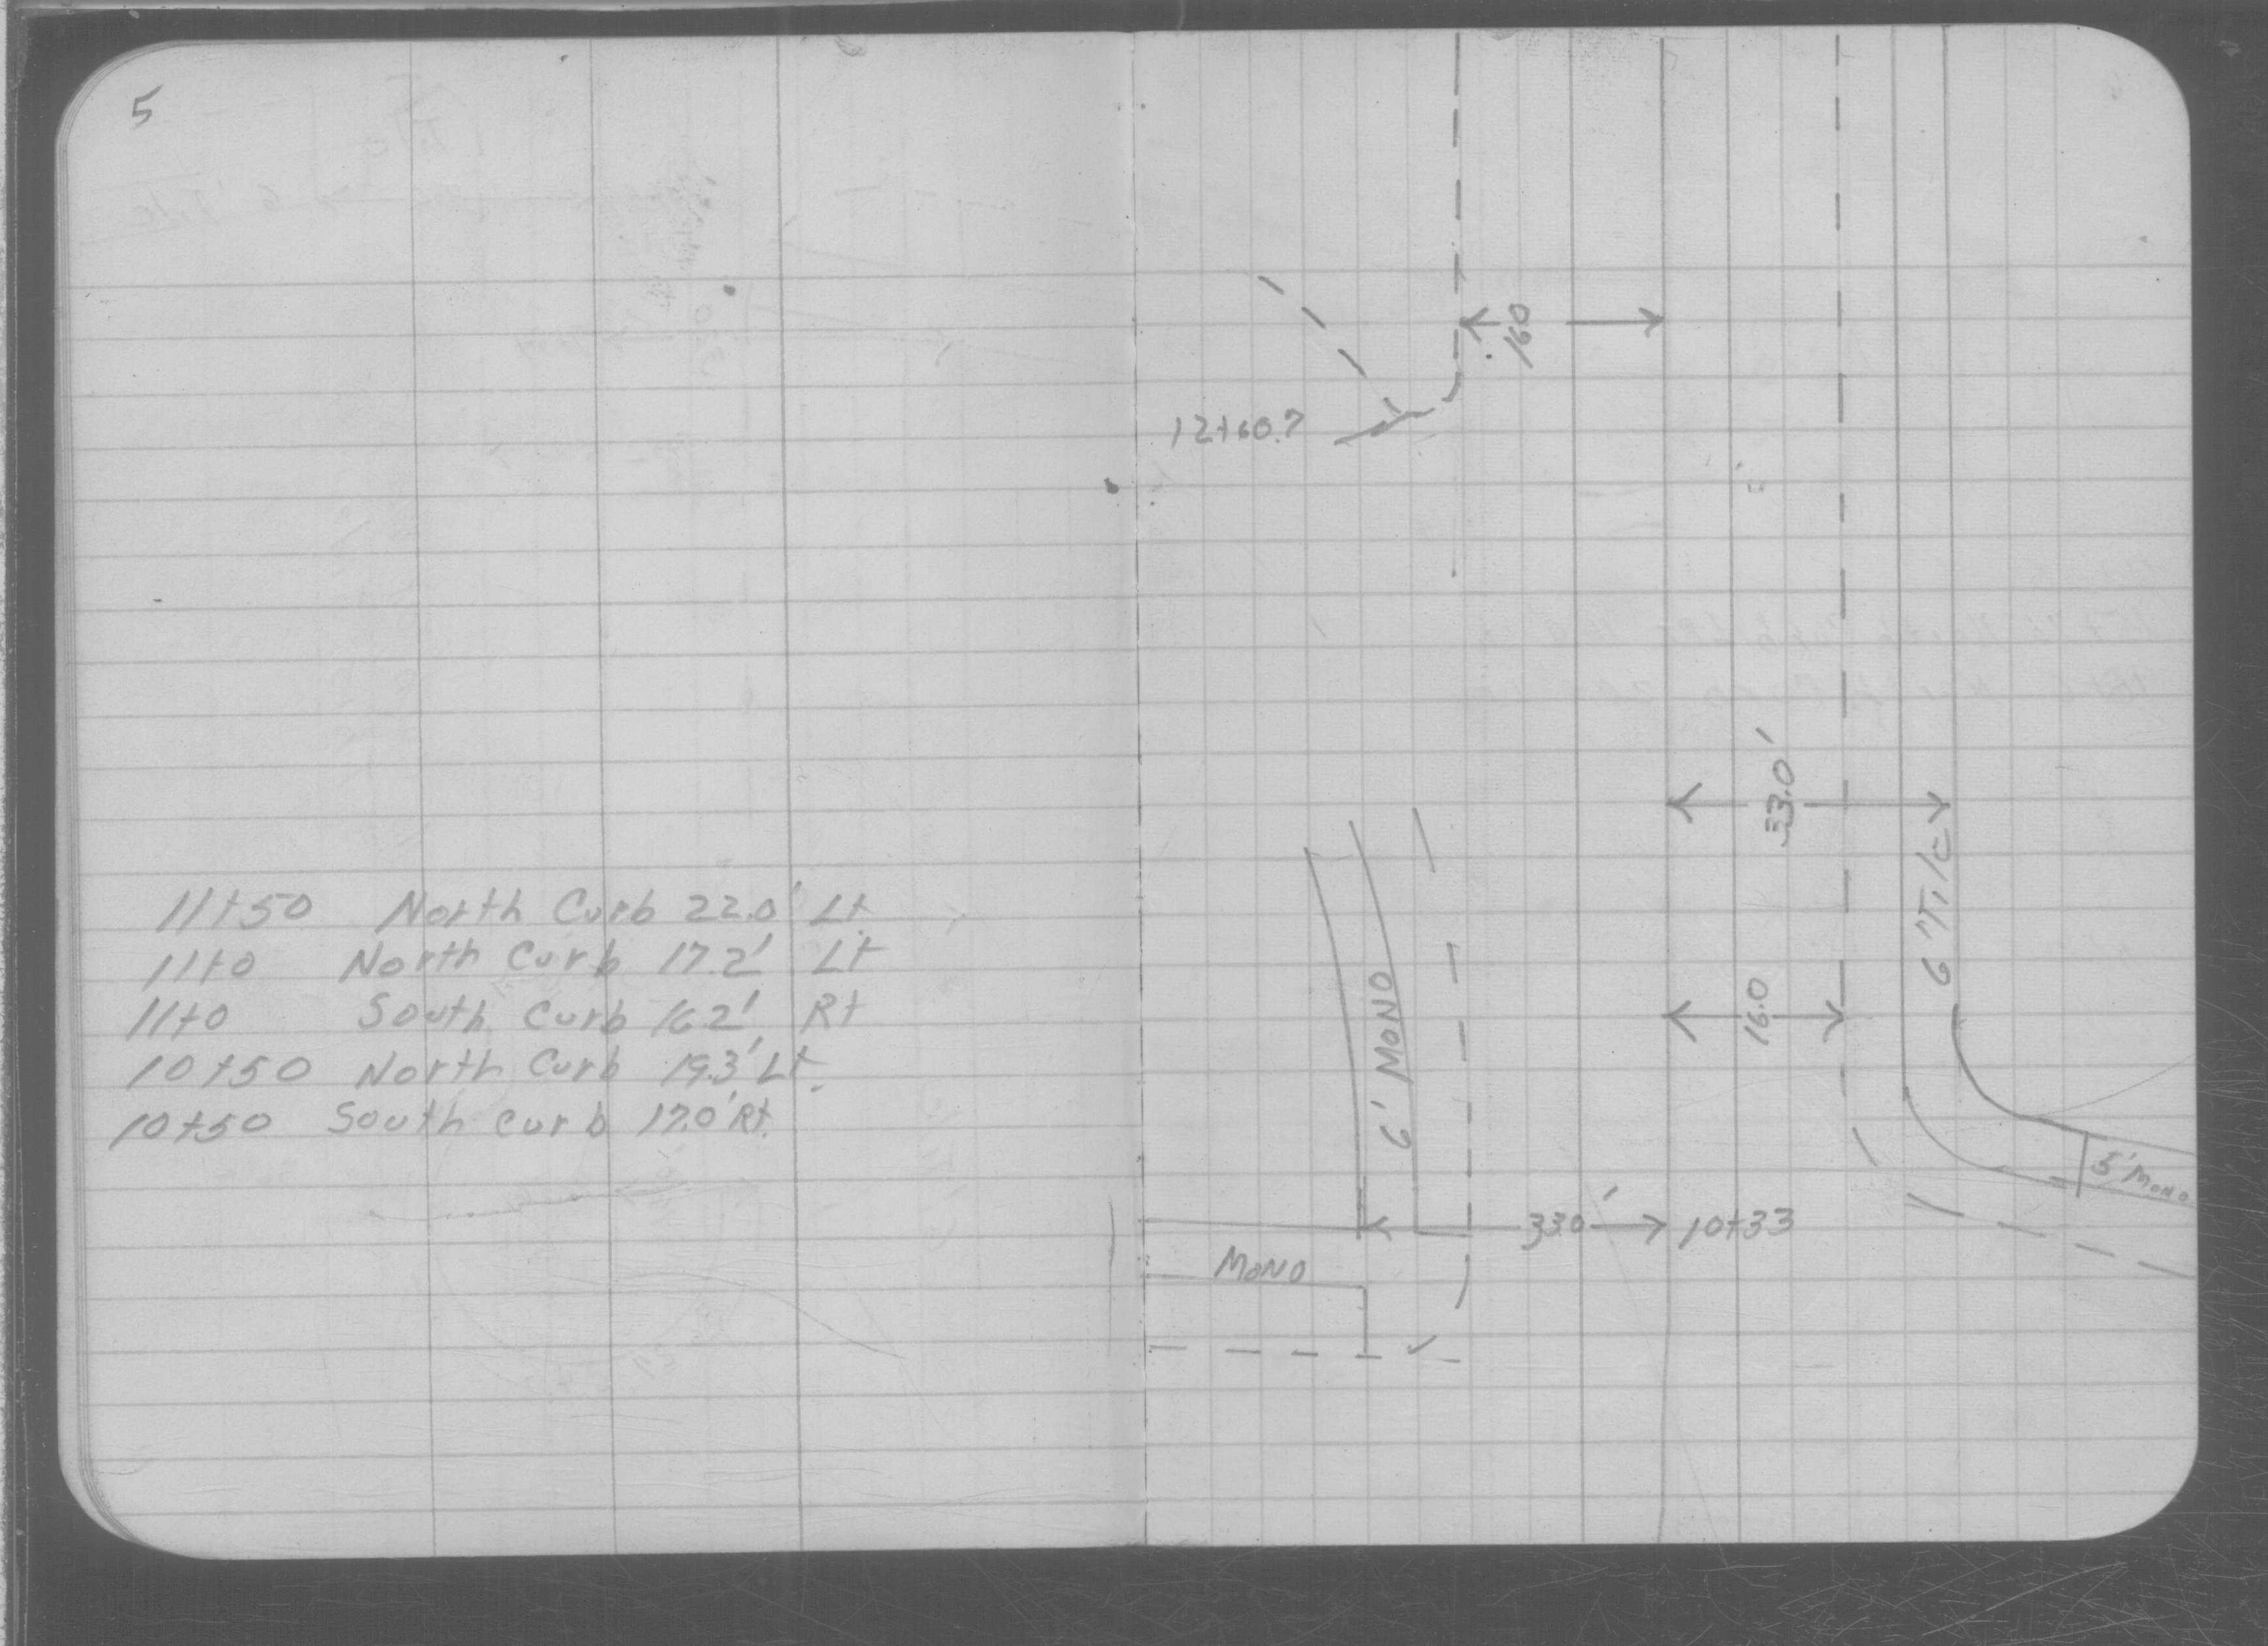 5
11+50 North Curb 22.0' Lt.
11+0 North Curb 17.2' Lt
11+0 South Curb 16.2' Rt
10+50 North Curb 19.3' Lt.
10+50 South Curb 17.0' Rt.
16.0
12+60.7
33.0'
6' Tile
16.0
6' MONO
5' MONO
33.0' 10+33
MONO